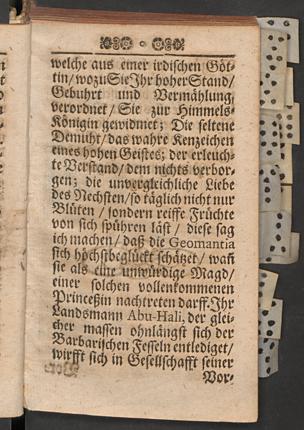 welche aus einer irdischen Göt-
tin/ wozu Sie Ihr hoher Stand/
Gebuhrt und Vermählung
verordnet/ Sie zur Himmels-
Königin gewidmet; Die seltene
Demuht/ das wahre Kenzeichen
eines hohen Geistes; der erleuch-
te Verstand/ dem nichts verbor-
gen; die unvergleichliche Liebe
des Nechsten/ so täglich nicht nur
Blüten / sondern reiffe Früchte
von sich spühren läst / diese sag
ich machen/ daß die Geomantia
sich höchstbeglückt schätzet/ wañ
sie als eine unwürdige Magd/
einer solchen vollenkommenen
Princeßin nachtreten darff. Ihr
Landsmann Abu-Hali, der glei-
cher massen ohnlängst sich der
Barbarischen Fesseln entlediget/
wirfft sich in Gesellschafft seiner
Vor-